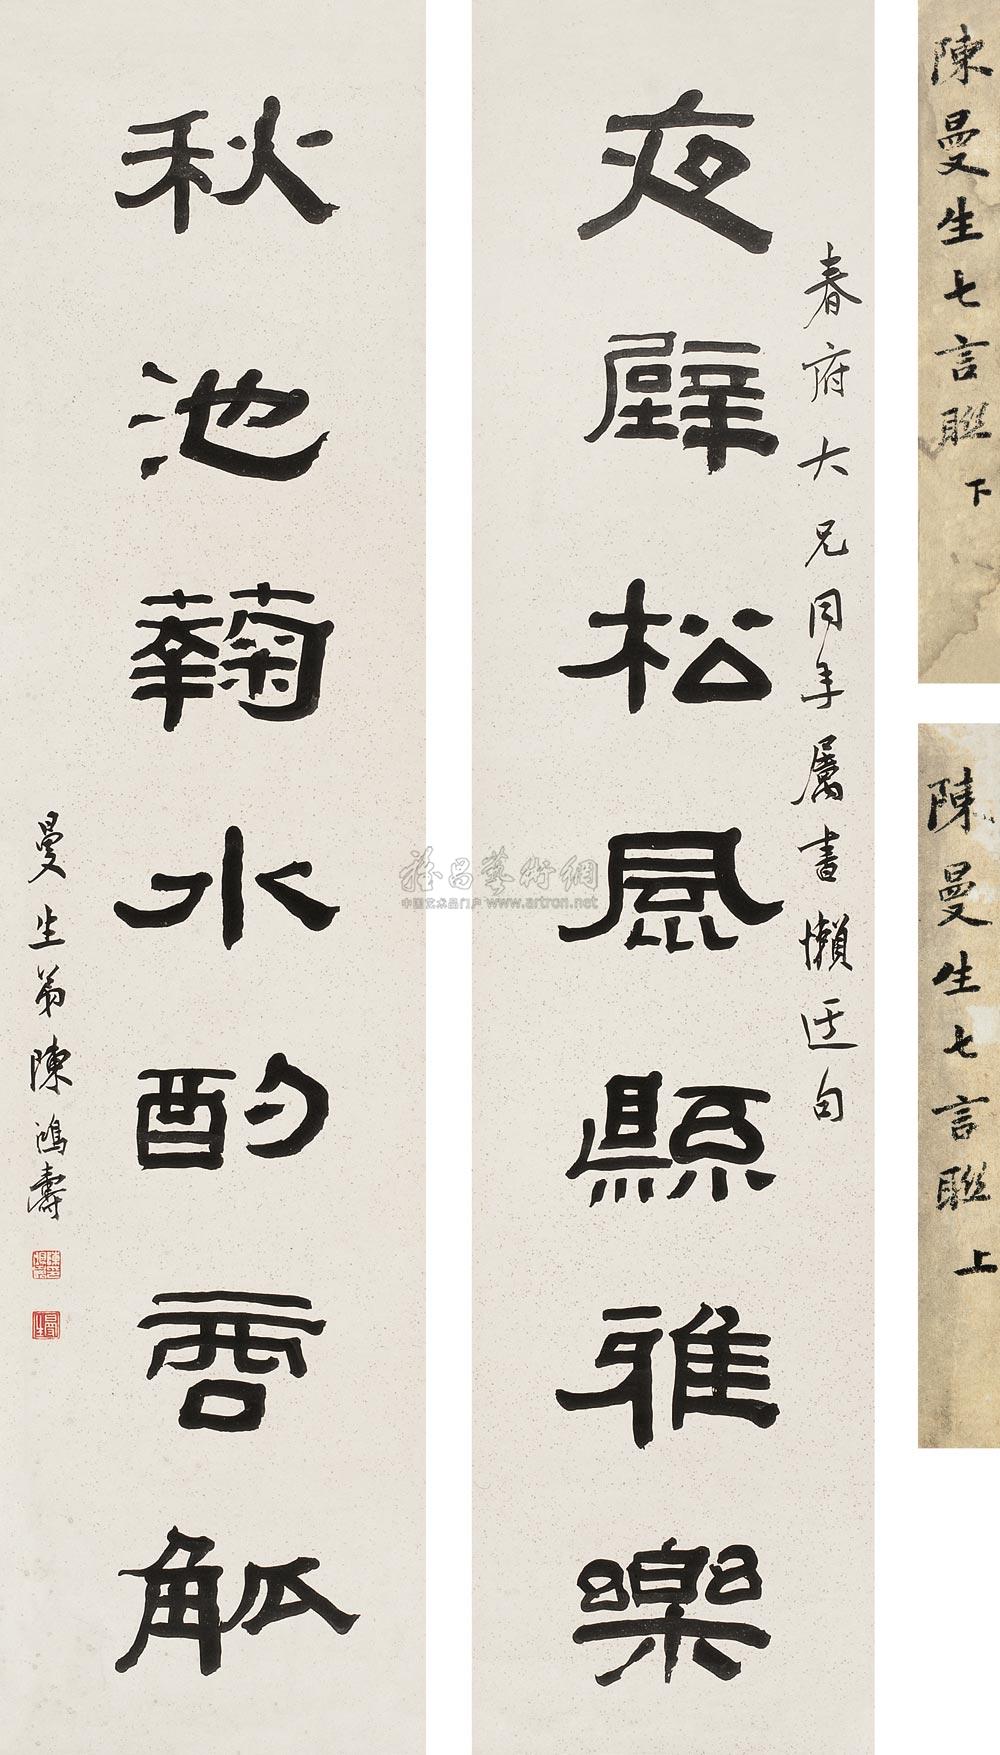 陳曼生七言聯上
陳曼生七言聯下
春府大兄同年屬書懶迂句
夜壁松風縣雅樂
秋池菊水酌觚
曼生弟陳鴻壽
曼生
雅昌藝術網
中国艺术品门户 www.artron.net